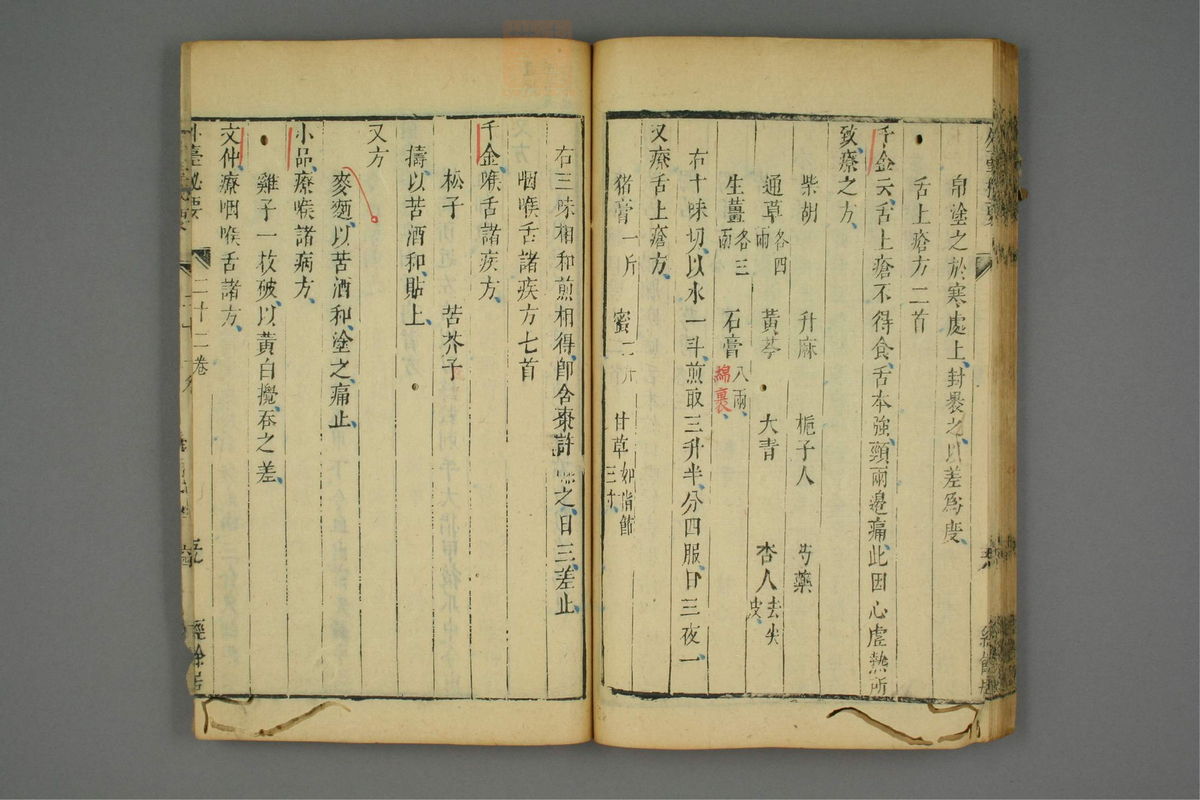 帛塗之於寒處上封裛之以差爲度
舌上瘡方二首
千金云舌上瘡不得食舌本強頸兩邊痛此因心虛熱所
致療之方
柴胡 升麻 梔子人 芍藥
通草各四兩 黃芩 大青 杏人去尖皮
生薑各三兩 石膏八兩綿裹
右十味切以水一斗煎取三升半分四服日三夜一
又療舌上瘡方
猪膏一斤 蜜二斤 甘草如指節三寸
右三味相和煎相得卽含棗許咽之日三差止
咽喉舌諸疾方七首
千金喉舌諸疾方
松子 苦芥子
擣以苦酒和貼上
又方
麥麵以苦酒和塗之痛止
小品療喉諸病方
雞子一枚破以黃白攪吞之差
文仲療咽喉舌諸方
外臺秘要 二十二卷 經餘居